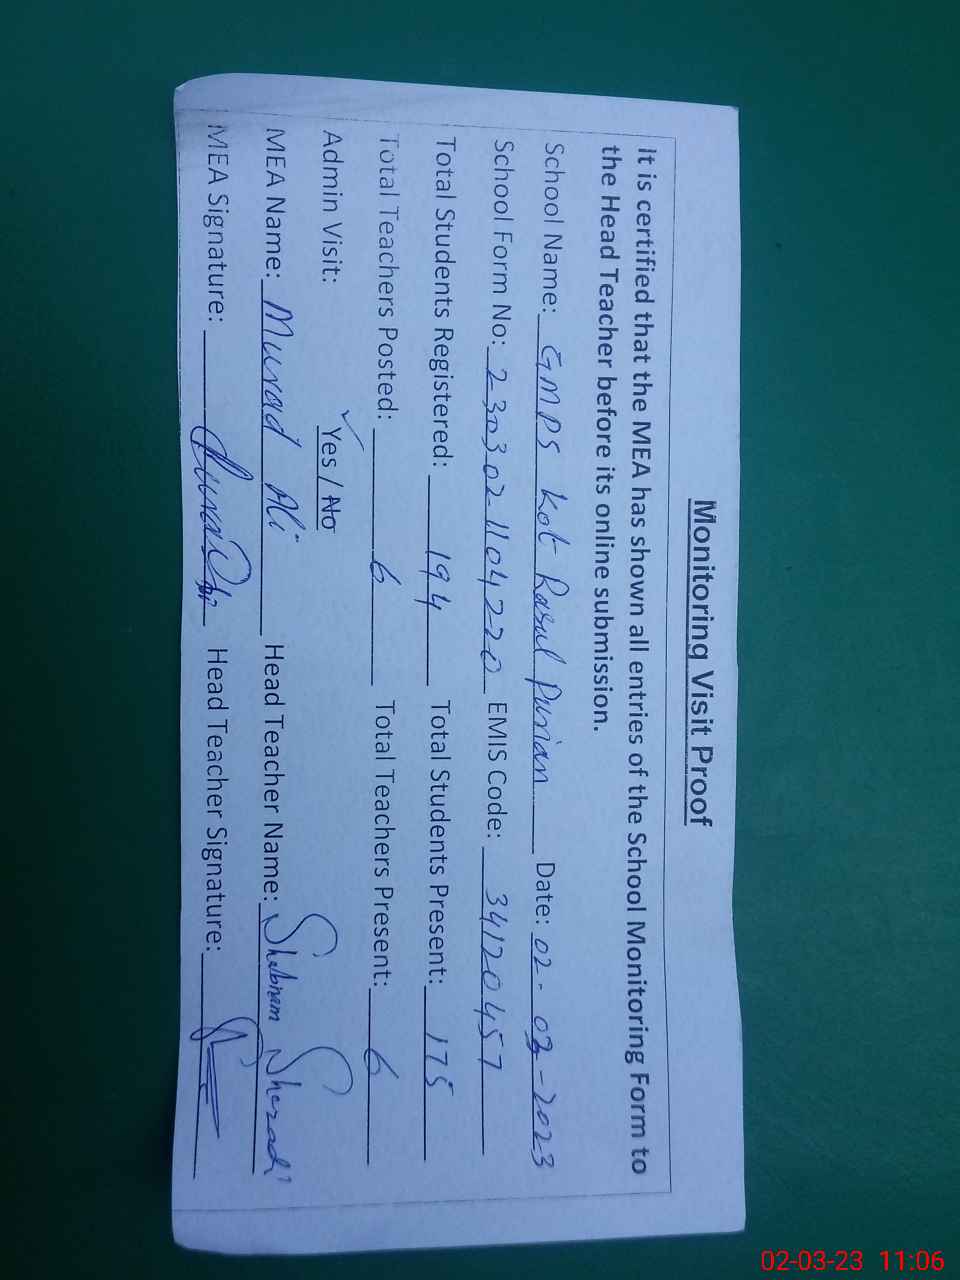 Monitoring Visit Proof
It is certified that the MEA has shown all entries of the School Monitoring Form to
the Head Teacher before its online submission.
School Name: GMPS Kot Rasul Purian Date: 02-03-2023
School Form No: 230302-1104220 EMIS Code: 34120457
Total Students Registered: 194 Total Students Present: 175
Total Teachers Posted: 6 Total Teachers Present: 6
Admin Visit: Yes / No
MEA Name: Murad Ali Head Teacher Name: Shabnam
MEA Signature: Head Teacher Signature:
02-03-23 11:06